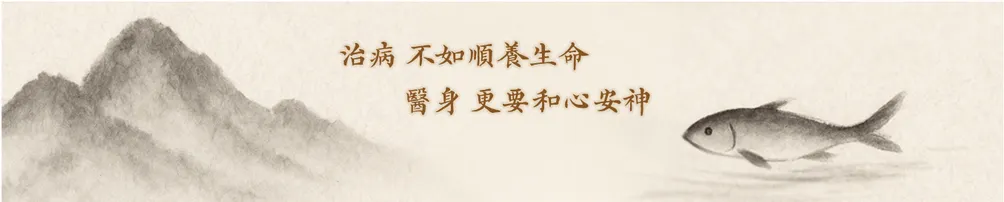 治病 不如順養生命
醫身 更要和心安神